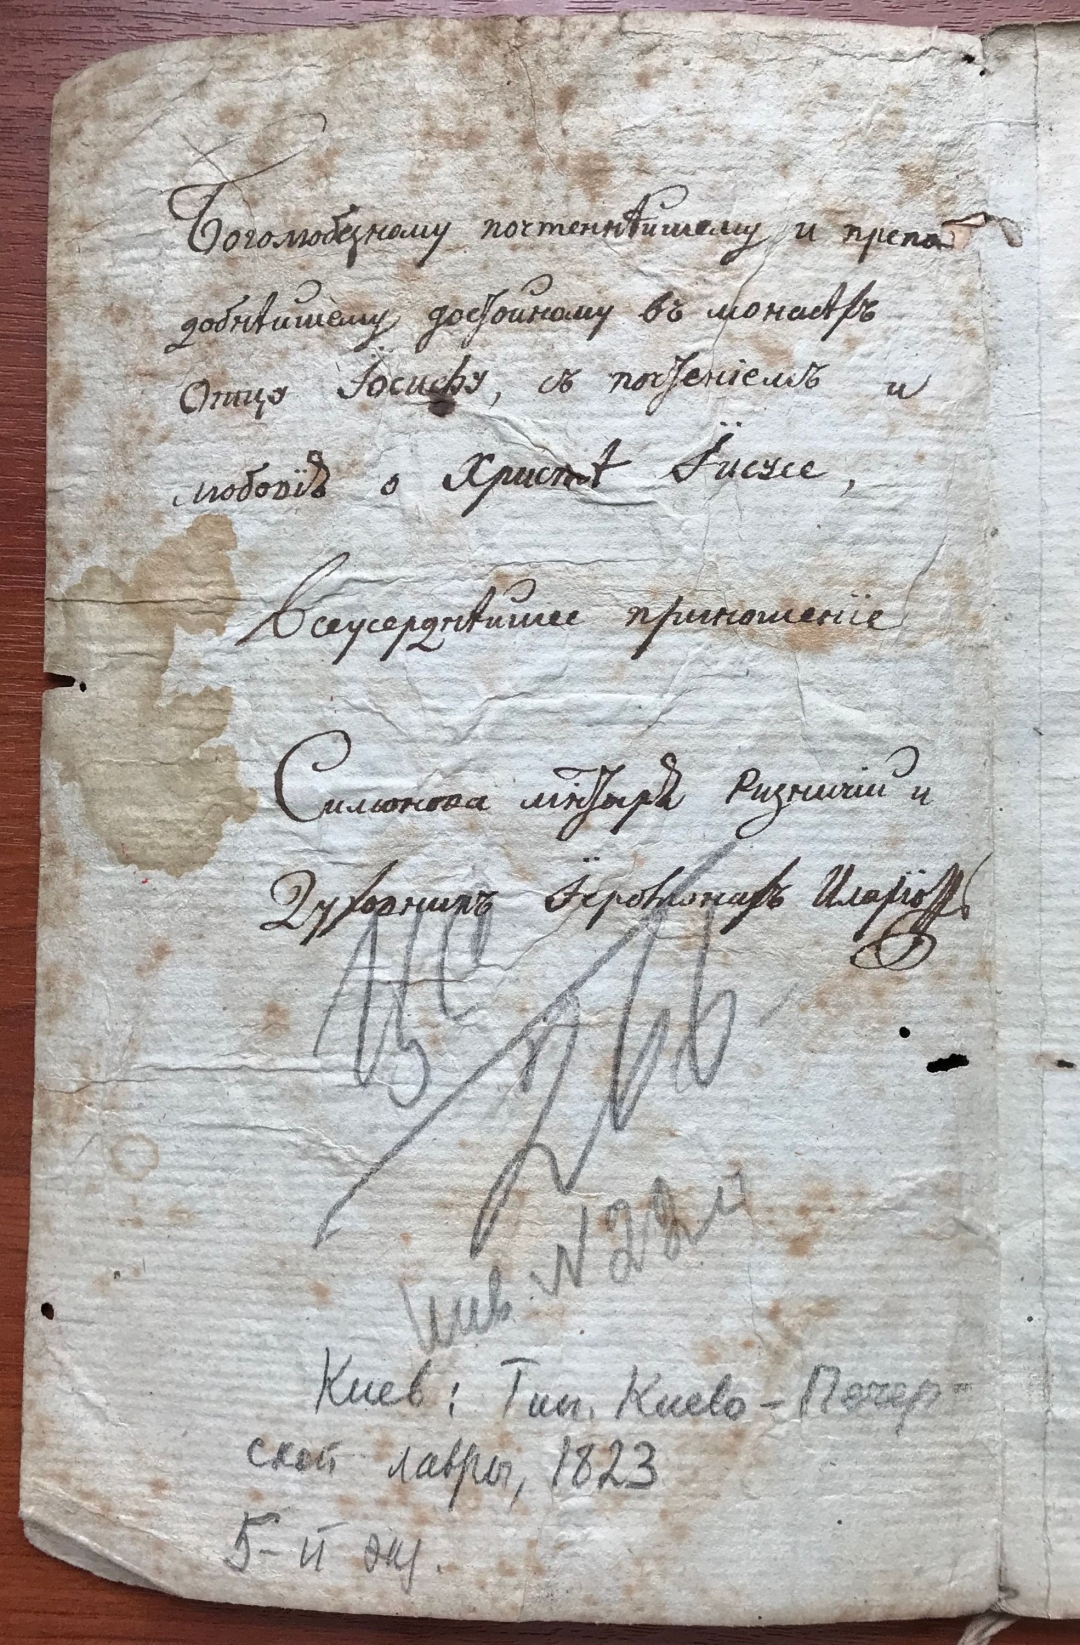 Боголюбезному почтеннѣйшему и препо
добнѣйшему достойному въ монасѣхъ
Отцу Іосифу, съ почтеніемъ и
любовію о Христѣ Іисусе,
Всеусерднѣйшее приношеніе
Симонова мнтыря Ризничій и
Духовникъ Іеромонахъ Иларіонъ
266
инв. N
Киев: Тип. Киево-Печер-
ской лавры, 1823
5-й экз.